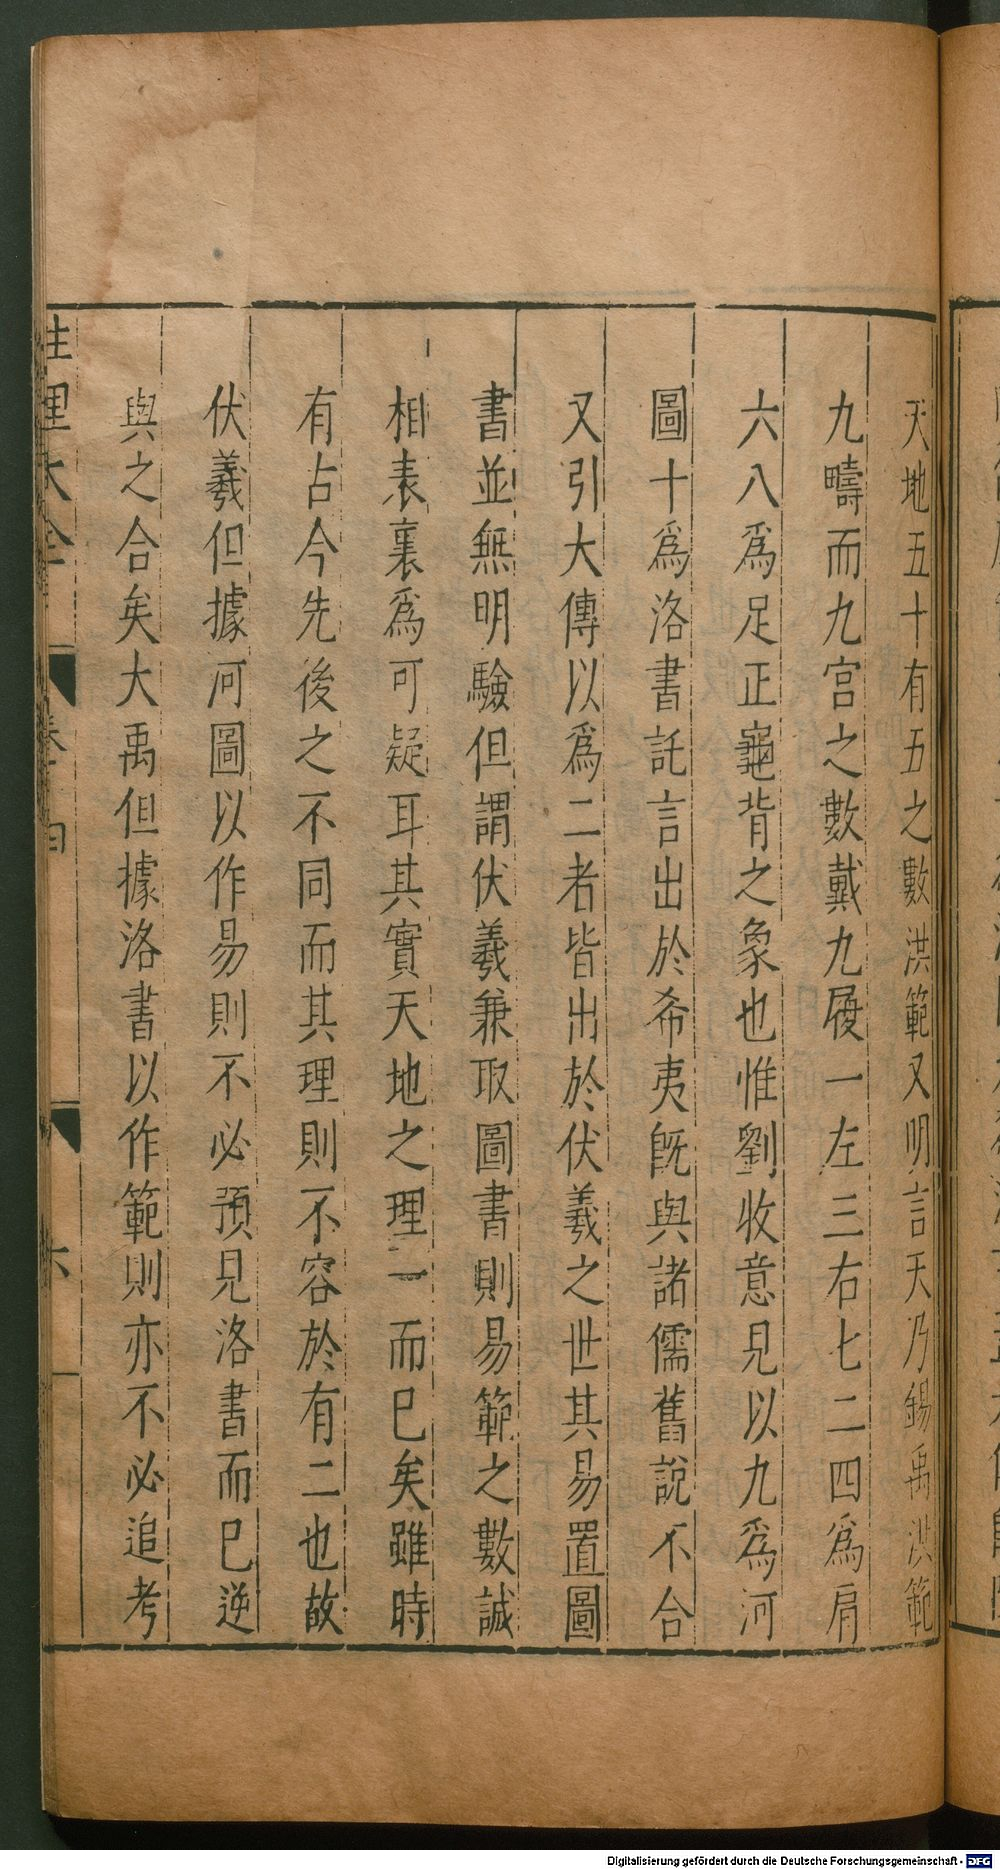 天地五十有五之數洪範又明言天乃錫禹洪範
九疇而九宮之數戴九履一左三右七二四爲肩
六八爲足正龜背之象也惟劉牧意見以九爲河
圖十爲洛書託言出於希夷旣與諸儒舊說不合
又引大傳以爲二者皆出於伏羲之世其易置圖
書並無明驗但謂伏羲兼取圖書則易範之數誠
相表裏爲可疑耳其實天地之理一而已矣雖時
有古今先後之不同而其理則不容於有二也故
伏羲但據河圖以作易則不必預見洛書而已逆
與之合矣大禹但據洛書以作範則亦不必追考
性理大全
卷十四
六
Digitalisierung gefördert durch die Deutsche Forschungsgemeinschaft - DFG